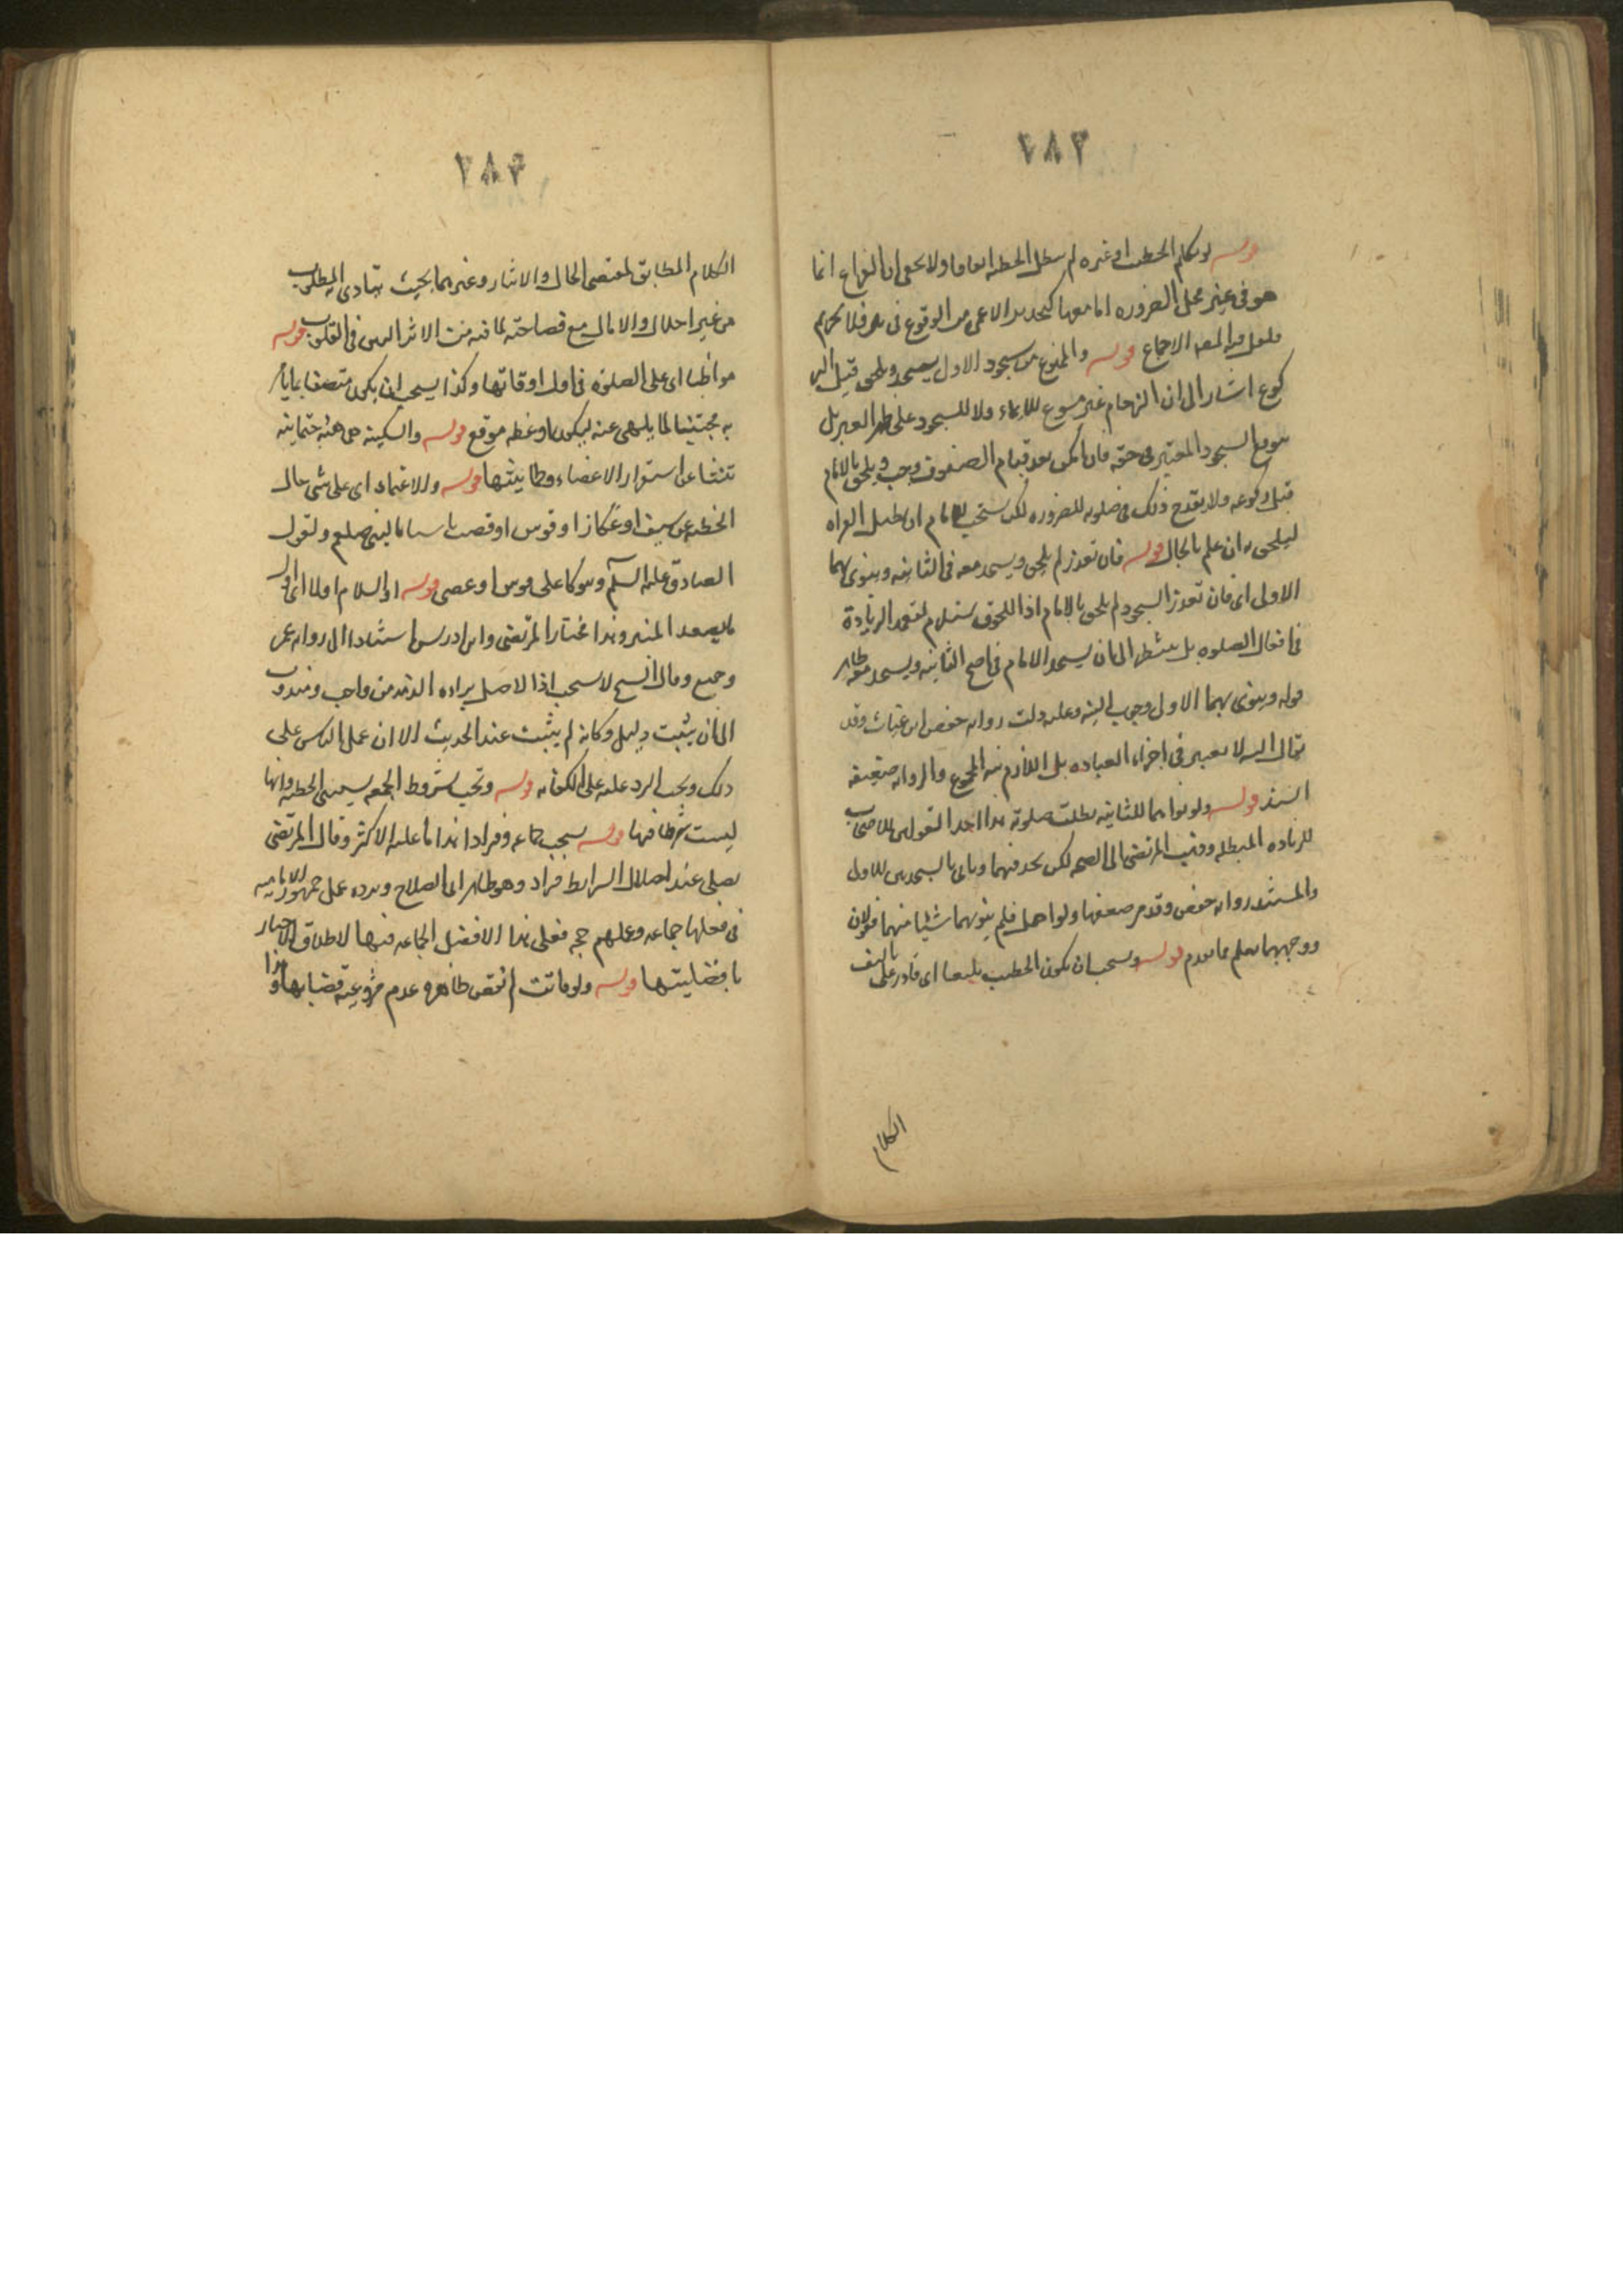 ٢٨٣
قوله لو تكلم الخطيب او غيره لم تبطل الخطبه اتفاقا ولا يخفى ان النزاع انما
هو فى غير محل الضروره اما معها كتحذير الاعمى من الوقوع فى بئر فلا تحريم
ولعل فيه الاجماع قوله والممنوع من سجود الاول يسجد ويلحق قبل الر
كوع اشار الى ان الزحام غير مسوغ للايماء ولا للسجود على ظهر الغير بل
السجود المعتبر فى حقه فان امكن بعد قيام الصفوف وجب ويلحق بالامام
قبل ركوعه ولا يقدح ذلك فى صلوته للضروره لكن يستحب للامام ان يطيل القراه
ليلحق به ان علم بالحال قوله فان تعذر لم يلحق ويسجد معه فى الثانيه وينوى بهما
الاولى اى فان تعذر السجود لم يلحق بالامام اذ اللحوق يستلزم تعمد الزيادة
فى افعال الصلوه بل ينتظر الى ان يسجد الامام فى الثانيه ويسجد معه ظاهر
قوله وينوى بهما الاول وجوب النيه وعليه دلت روايه حفص ابن غياث وقد
يقال النيه لا تعتبر فى اجزاء العباده بل اللازم نيه المجموع والروايه ضعيفه
السند قوله ولو نوا بهما للثانيه بطلت صلوته هذا احد القولين للاصحاب
للزياده المبطله وذهب المرتضى الى الصحه لكن يحذفهما وياتى بالسجدتين للاول
والمستند روايه حفص وقد مر ضعفها ولو اهمل فلم ينو بهما شيئا منهما فقولان
ووجههما يعلم مما تقدم قوله ويستحب ان يكون الخطيب بليغا اى قادر على تاليف
الكلام
٢٨٤
الكلام المطابق لمقتضى الحال والانذار وغيرهما بحيث يتادى المطلوب
من غير اخلال والاملال مع فصاحته لما فيه من الاثر البين فى القلوب قوله
مواظبا اى على الصلوة فى اول اوقاتها وكذا يستحب ان يكون متصفا بما يامر
به مجتنبا لما ينهى عنه ليكون لوعظه موقع قوله والسكينه هى هيئه جثمانيه
تنشا عن استقرار الاعضاء وطمانينتها قوله والاعتماد اى على شى حال
الخطبه من سيف او عكاز او قوس او قصب تاسيا بالنبى صلعم ولقول
الصادق عليه السلم ويتوكا على قوس او عصى قوله والسلام اولا اى اول
ما يصعد المنبر وهذا مختار المرتضى وابن ادريس استنادا الى روايه عمر
وجميع وقال الشيخ لا يستحب اذ الاصل براءه الذمه من واجب ومندوب
الى ان يثبت دليل وكانه لم يثبت عنده الحديث الا ان عمل الناس على
ذلك ويجب الرد عليه على الكفايه قوله وتجب شروط الجمعه يستثنى الخطبه فانها
ليست شرطا فيها قوله يستحب جماعه وفرادا هذا ما عليه الاكثر وقال المرتضى
يصلى عند اختلال الشرايط فراد وهو ظاهر ابى الصلاح ويرده عمل جمهور الاماميه
فى فعلها جماعه وعملهم حجه فعلى هذا الافضل الجماعه فيها لاطلاق الاخبار
بافضليتها قوله ولو فاتت لم تقض ظاهره عدم مشروعيه قضائها وهذا